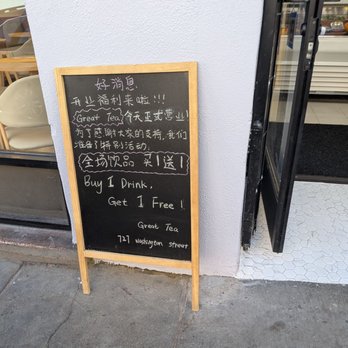 好消息
开业福利来啦!!!
Great Tea 今天正式营业!
为了感谢大家的支持,我们
准备了特别活动.
全场饮品 买1送1
Buy 1 Drink,
Get 1 Free!
Great Tea
727 Washington street